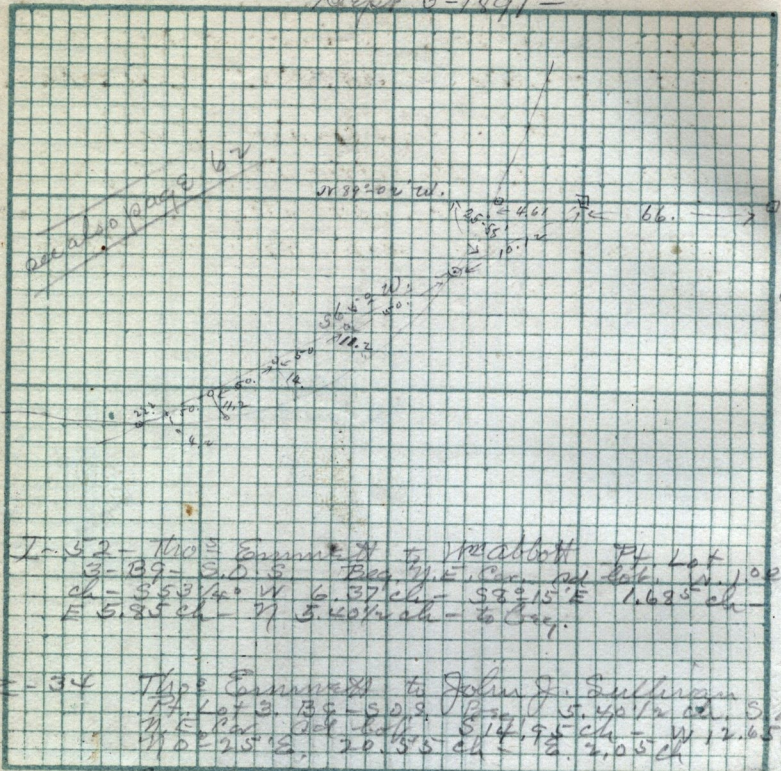 1891-
see also page 62
N 89°-02' W.
4.61
66.
25°55'
10.12
S 65°-9 W.
50.
11.2
50
14.
50.
11.2
50.
22.7
4.
I-52- Thos Emmett to Wm Abbott Pt Lot
3- B9- S.D.S. Beg. N.E. Cor. sd lot. W. 1.00
ch- S 53 1/4° W 6.37 ch- S 8°15' E 1.685 ch-
E 5.85 ch- N 5.40 1/2 ch- to beg.
-34 Thos Emmett to John J. Sullivan
Pt. Lot 3. B9-S.D.S. Beg. 5.40 1/2 ch. S.
N.E. Cor. sd lot. S 14.95 ch- W 12.65
N 0°-25' E. 20.55 ch- E. 2.05 ch